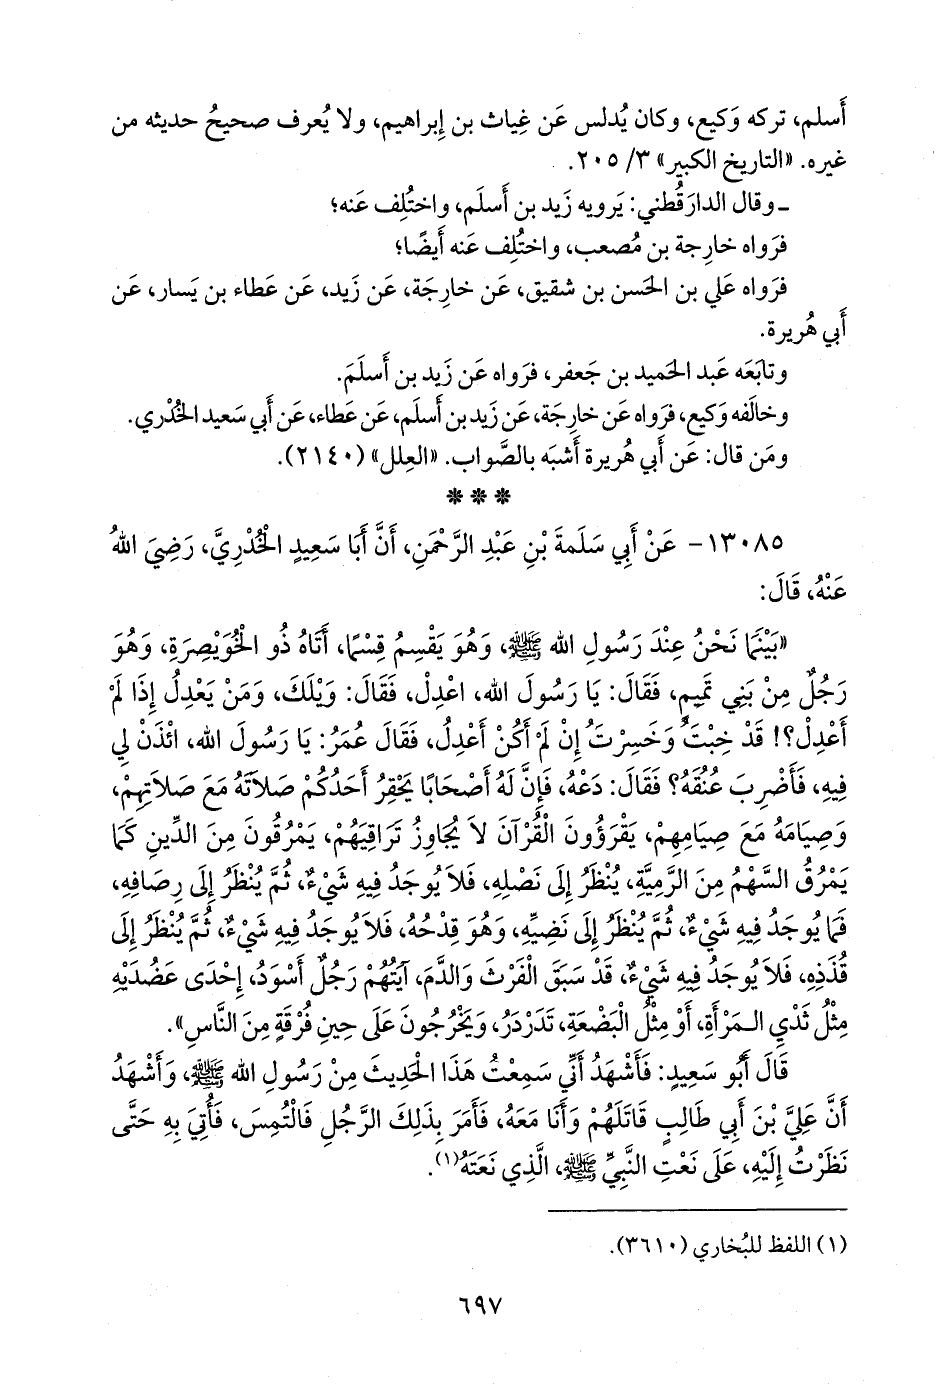 أَسلم، تركه وَكيع، وكان يُدلس عَن غِياث بن إِبراهيم، ولا يُعرف صحيحُ حديثه من
غيره. «التاريخ الكبير» ٣/ ٢٠٥.
ـ وقال الدارَقُطني: يَرويه زَيد بن أَسلَم، واختُلِف عَنه؛
فرَواه خارِجة بن مُصعب، واختُلِف عَنه أَيضًا؛
فرَواه عَلي بن الحَسن بن شقيق، عَن خارِجَة، عَن زَيد، عَن عَطاء بن يَسار، عَن
أَبي هُريرة.
وتابَعَه عَبد الحَميد بن جَعفر، فرَواه عَن زَيد بن أَسلَمَ.
وخالَفه وَكيع، فرَواه عَن خارِجَة، عَن زَيد بن أَسلَم، عَن عَطاء، عَن أَبي سَعيد الخُدْري.
ومَن قال: عَن أَبي هُريرة أَشبَه بالصَّواب. «العِلل» (٢١٤٠).
* * *
١٣٠٨٥- عَنْ أَبِي سَلَمةَ بْنِ عَبْدِ الرَّحْمَنِ، أَنَّ أَبَا سَعِيدٍ الْخُدْرِيَّ، رَضِيَ اللهُ
عَنْهُ، قَالَ:
«بَيْنَمَا نَحْنُ عِنْدَ رَسُولِ الله ﷺ، وَهُوَ يَقْسِمُ قِسْمًا، أَتَاهُ ذُو الْخُوَيْصِرَةِ، وَهُوَ
رَجُلٌ مِنْ بَنِي تَمِيمٍ، فَقَالَ: يَا رَسُولَ الله، اعْدِلْ، فَقَالَ: وَيْلَكَ، وَمَنْ يَعْدِلُ إِذَا لَمْ
أَعْدِلْ؟! قَدْ خِبْتُ وَخَسِرْتُ إِنْ لَمْ أَكُنْ أَعْدِلُ، فَقَالَ عُمَرُ: يَا رَسُولَ الله، ائْذَنْ لِي
فِيهِ، فَأَضْرِبَ عُنُقَهُ؟ فَقَالَ: دَعْهُ، فَإِنَّ لَهُ أَصْحَابًا يَحْقِرُ أَحَدُكُمْ صَلاَتَهُ مَعَ صَلاَتِهِمْ،
وَصِيَامَهُ مَعَ صِيَامِهِمْ، يَقْرَؤُونَ الْقُرْآنَ لاَ يُجَاوِزُ تَرَاقِيَهُمْ، يَمْرُقُونَ مِنَ الدِّينِ كَمَا
يَمْرُقُ السَّهْمُ مِنَ الرَّمِيَّةِ، يُنْظَرُ إِلَى نَصْلِهِ، فَلاَ يُوجَدُ فِيهِ شَيْءٌ، ثُمَّ يُنْظَرُ إِلَى رِصَافِهِ،
فَمَا يُوجَدُ فِيهِ شَيْءٌ، ثُمَّ يُنْظَرُ إِلَى نَضِيِّهِ، وَهُوَ قِدْحُهُ، فَلاَ يُوجَدُ فِيهِ شَيْءٌ، ثُمَّ يُنْظَرُ إِلَى
قُذَذِهِ، فَلاَ يُوجَدُ فِيهِ شَيْءٌ، قَدْ سَبَقَ الْفَرْثَ وَالدَّمَ، آيَتُهُمْ رَجُلٌ أَسْوَدُ، إِحْدَى عَضُدَيْهِ
مِثْلُ ثَدْيِ الـمَرْأَةِ، أَوْ مِثْلُ الْبَضْعَةِ، تَدَرْدَرُ، وَيَخْرُجُونَ عَلَى حِينِ فُرْقَةٍ مِنَ النَّاسِ».
قَالَ أَبُو سَعِيدٍ: فَأَشْهَدُ أَنِّي سَمِعْتُ هَذَا الْحَدِيثَ مِنْ رَسُولِ الله ﷺ، وَأَشْهَدُ
أَنَّ عَلِيَّ بْنَ أَبِي طَالِبٍ قَاتَلَهُمْ وَأَنَا مَعَهُ، فَأَمَرَ بِذَلِكَ الرَّجُلِ فَالْتُمِسَ، فَأُتِيَ بِهِ حَتَّى
نَظَرْتُ إِلَيْهِ، عَلَى نَعْتِ النَّبِيِّ ﷺ، الَّذِي نَعَتَهُ(١).
(١) اللفظ للبُخاري (٣٦١٠).
٦٩٧